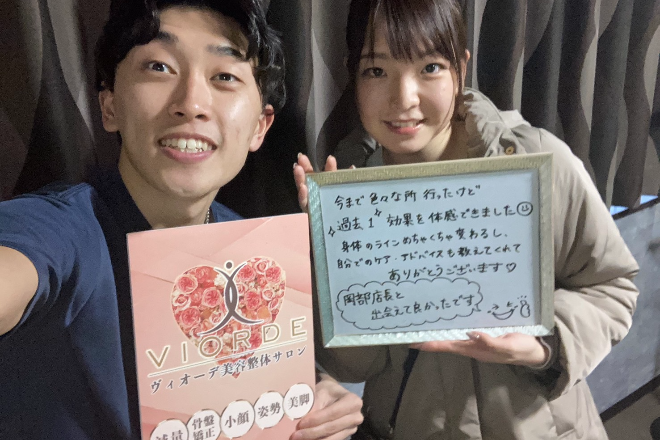 今まで色々な所行ったけど
過去1効果を体感できました
身体のラインめちゃくちゃ変わるし、
自分でのケア・アドバイスも教えてくれて
ありがとうございます♡
岡部店長と
出会えて良かったです
VIORDE
ヴィオーデ美容整体サロン
減量 骨盤矯正 小顔 姿勢 美脚